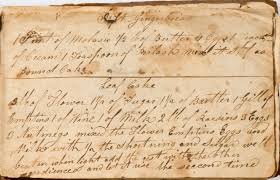 Soft Gingerbread
1 Pint of Molasses 1/2 lb of Butter 4 Eggs 1
of Cream 1 Teaspoon of Pearlash mix it stiff as
Pound Cake
Loaf Cake
of Flower of Sugar of Butter 1 Gill of
Emptins 1 of Wine 1 of Milk 2 lb of Raisins 3 Eggs
2 Nutmegs mixed the Flower Emptins Eggs and
Milk with 1/2 the Shortning and Sugar well
beaten when light add the rest of the other
and let it rise the second time